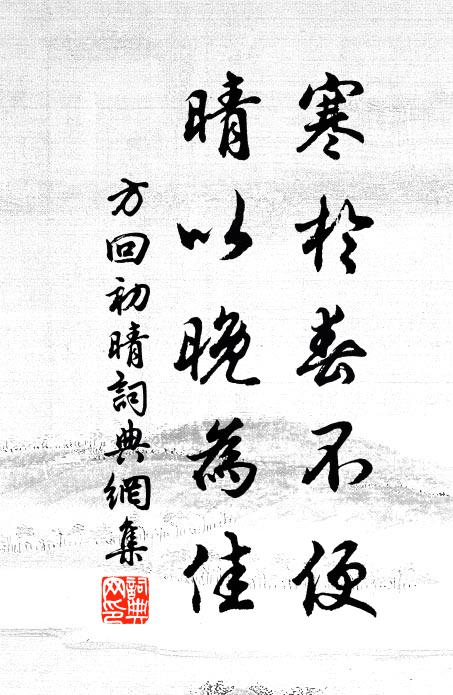 寒於春不便
晴以晚為佳
方回初晴詞典網集
詞典网印